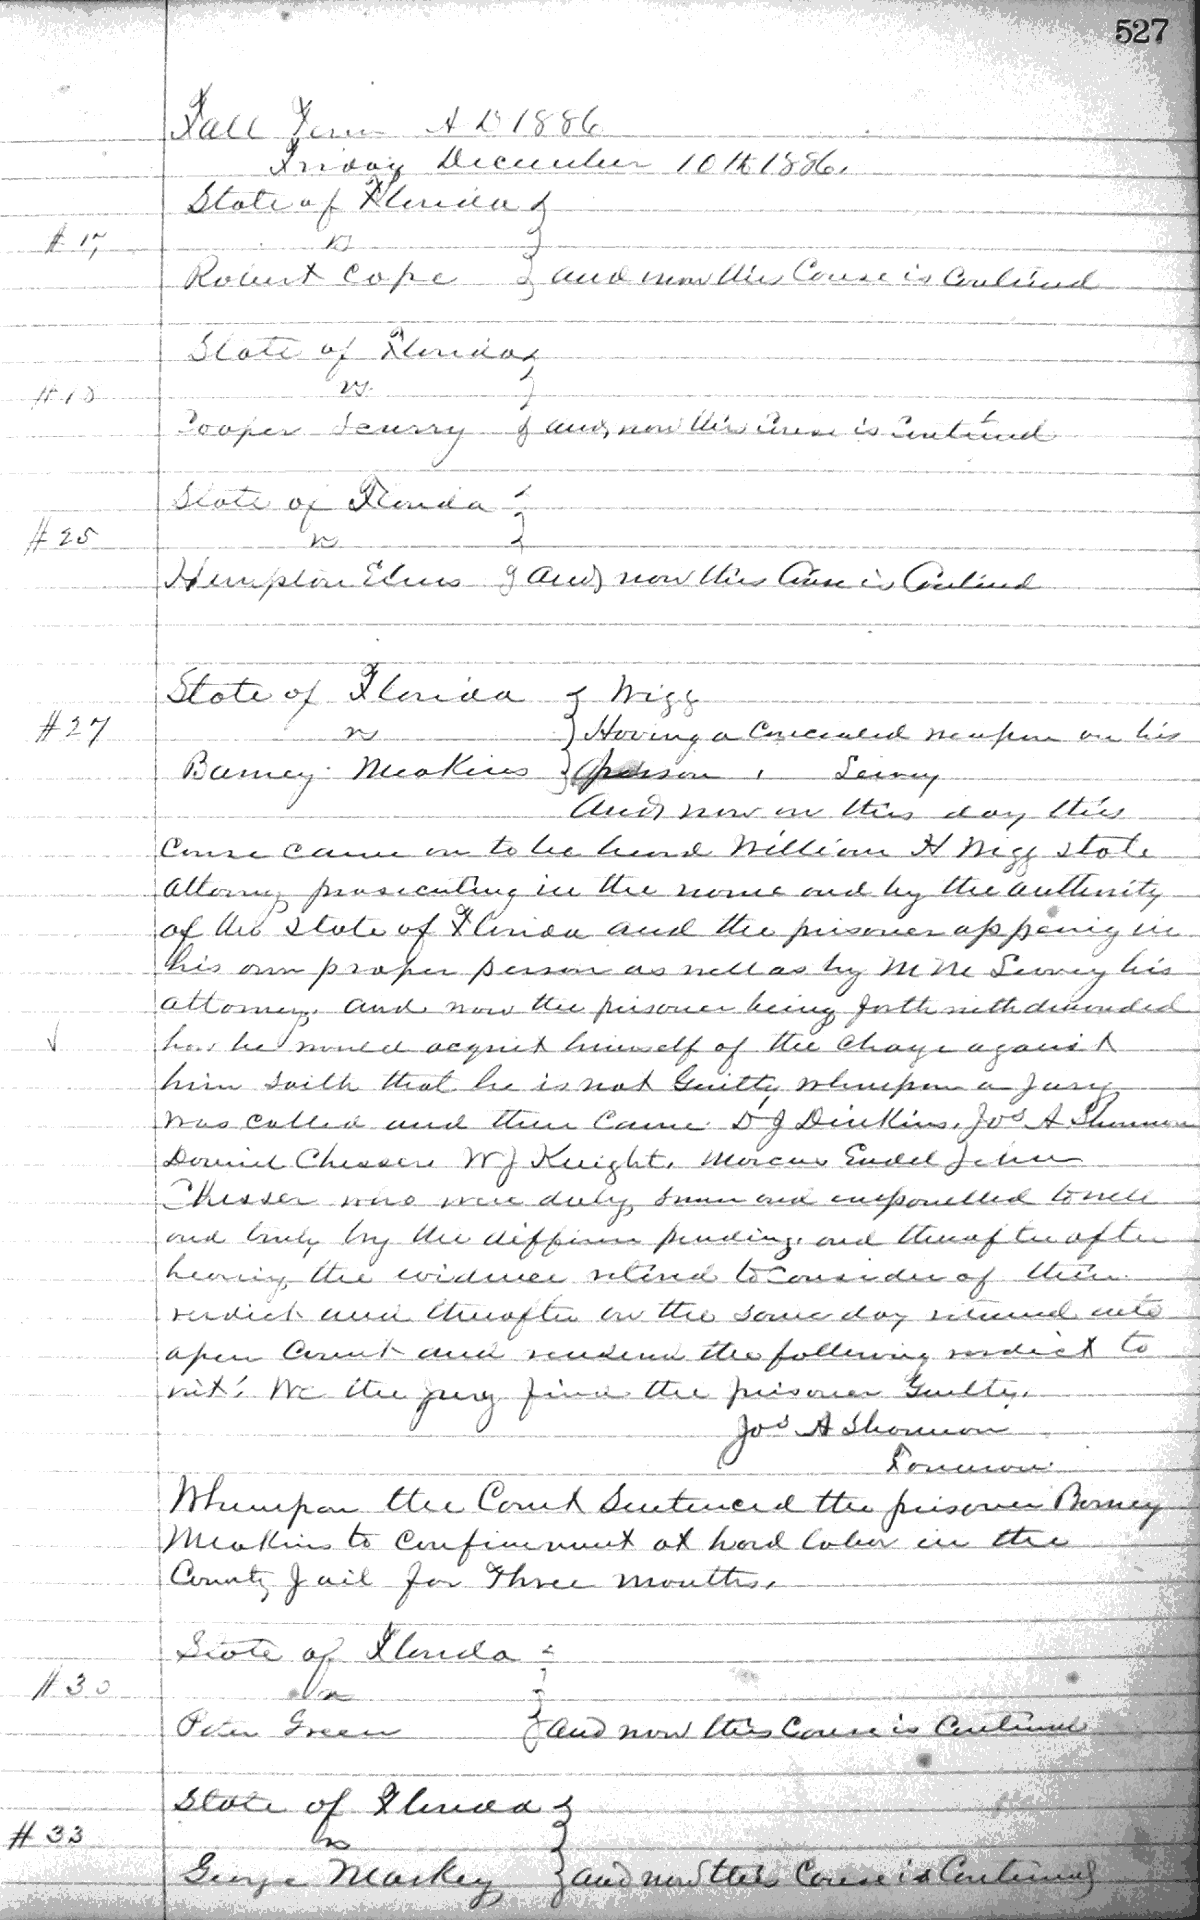 527
Fall Term A D 1886
Friday December 10th 1886.
State of Florida
# 17 vs
Robert Cope and now this Cause is Contined
State of Florida
# 18 vs.
Cooper Scurry and now this Cause is Contined
State of Florida
# 25 vs
Hampton Elms and now this Cause is Contined
State of Florida Wigg
# 27 vs Having a Concealed weapon on his
Barney Meakins person.
And now on this day this
Cause came on to be heard William H Wigg State
Attorney prosecuting in the name and by the authority
of the State of Florida and the prisoner appearing in
his own proper person as well as by his
attorney. and now the prisoner being forthwith demanded
how he would acquit himself of the charge against
him saith that he is not Guilty whereupon a Jury
was called and then Came D J Dinkins. Jos A Shannon
Daniel Chesser W J Knight. Marcus Endel John
Chesser who were duly sworn and empanelled to well
and truly try the difference pending. and thereafter after
hearing the evidence retired to Consider of their
verdict and thereafter on the same day returned into
open Court and rendered the following verdict to
wit: We the jury find the prisoner Guilty.
Jos A Shannon
Foreman
Whereupon the Court Sentenced the prisoner Barney
Meakins to confinement at hard labor in the
County Jail for Three months.
State of Florida
# 30 vs
Peter Green and now this Cause is Continued
State of Florida
# 33 vs
George Markey and now this Cause is Continued